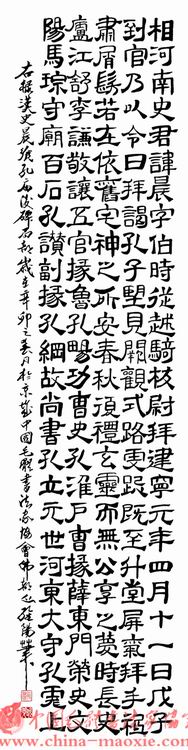 相河南史君諱晨字伯時從越騎校尉拜建寧元年四月十一日戊子
到官乃以令日拜謁孔子望見闕觀式路虔跽既至升堂屏氣拜手祗
肅屑髣若在依舊宅神之所安春秋復禮玄靈而無公享之時長史
廬江舒李謙敬讓五官掾魯孔暢功曹史孔淮戶曹掾薛東門榮史文
陽馬琮守廟百石孔讚副掾孔綱故尚書孔立元世河東大守孔彪
漢史晨後孔廟後碑歲在辛卯之春月於京中國毛體書法家協會
www.china-maoxie.com